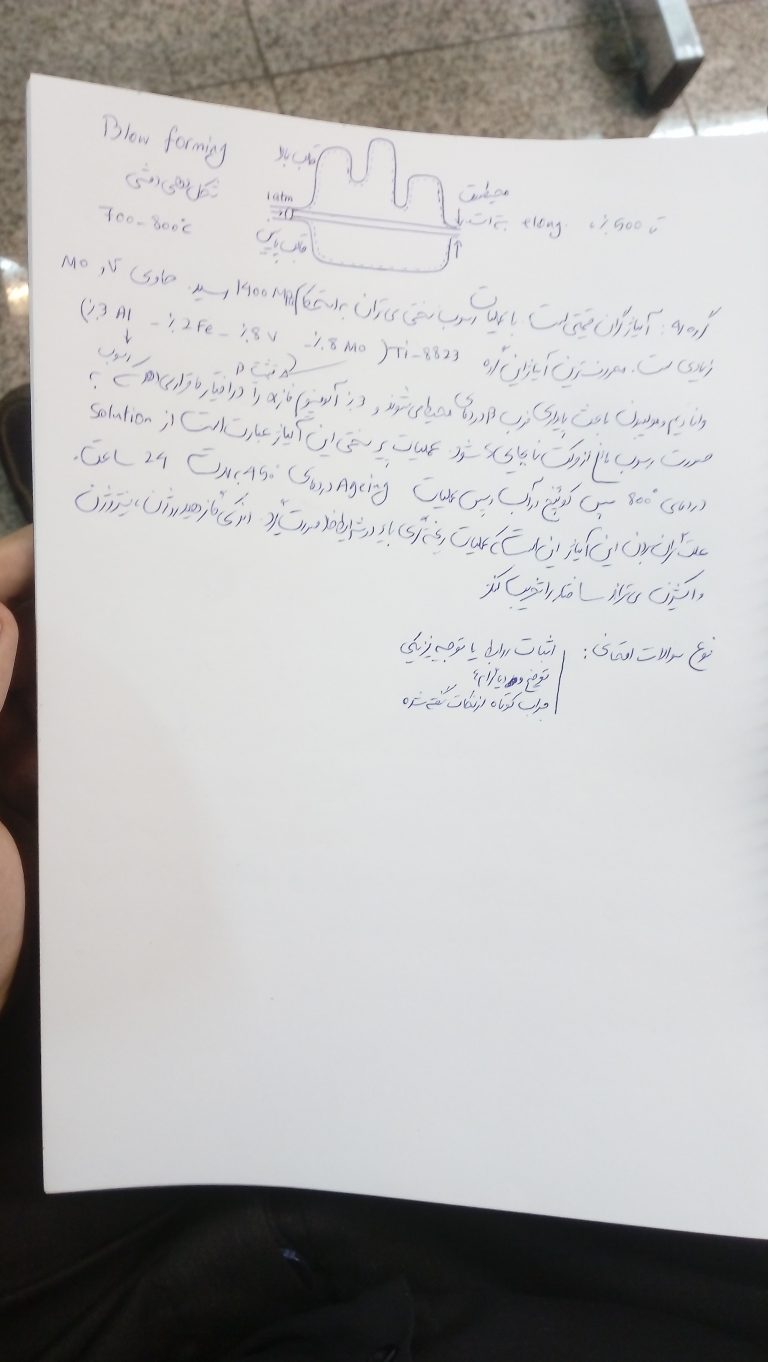 Blow forming
شکل دهی دمشی
700-800°c
قالب بالا
1 atm
قالب پایین
محیطیست
تا 500٪ elong.
گروه β: آلیاژ گران قیمتی است. با عملیات رسوب سختی می توان به استحکام 1400 MPa رسید. حاوی Mo
زیادی است. معروفترین آلیاژ این گروه Ti-8823 (٪8 Mo - ٪8 V - ٪2 Fe - ٪3 Al)
رسوب
وانادیم و مولیبدن باعث پایداری فریب β در دمای محیط می شوند و آلومینیوم فاز α را در اختیار ما قرار می دهد که به
صورت رسوب مانع از حرکت نابجایی ها می شود. عملیات پیر سختی این آلیاژ عبارت است از Solution
در دمای 800° سپس کوئنچ در آب و سپس عملیات Ageing در دمای 450° به مدت 24 ساعت.
علت گران بودن این آلیاژ این است که عملیات ریخته گری باید در شرایط خلا صورت گیرد. اندکی گاز هیدروژن، نیتروژن
و اکسیژن می تواند ساختار را تخریب کند
نوع سوالات امتحانی: اثبات روابط با توجیه فیزیکی
توضیح دیاگرام ها
جواب کوتاه از نکات گفته شده